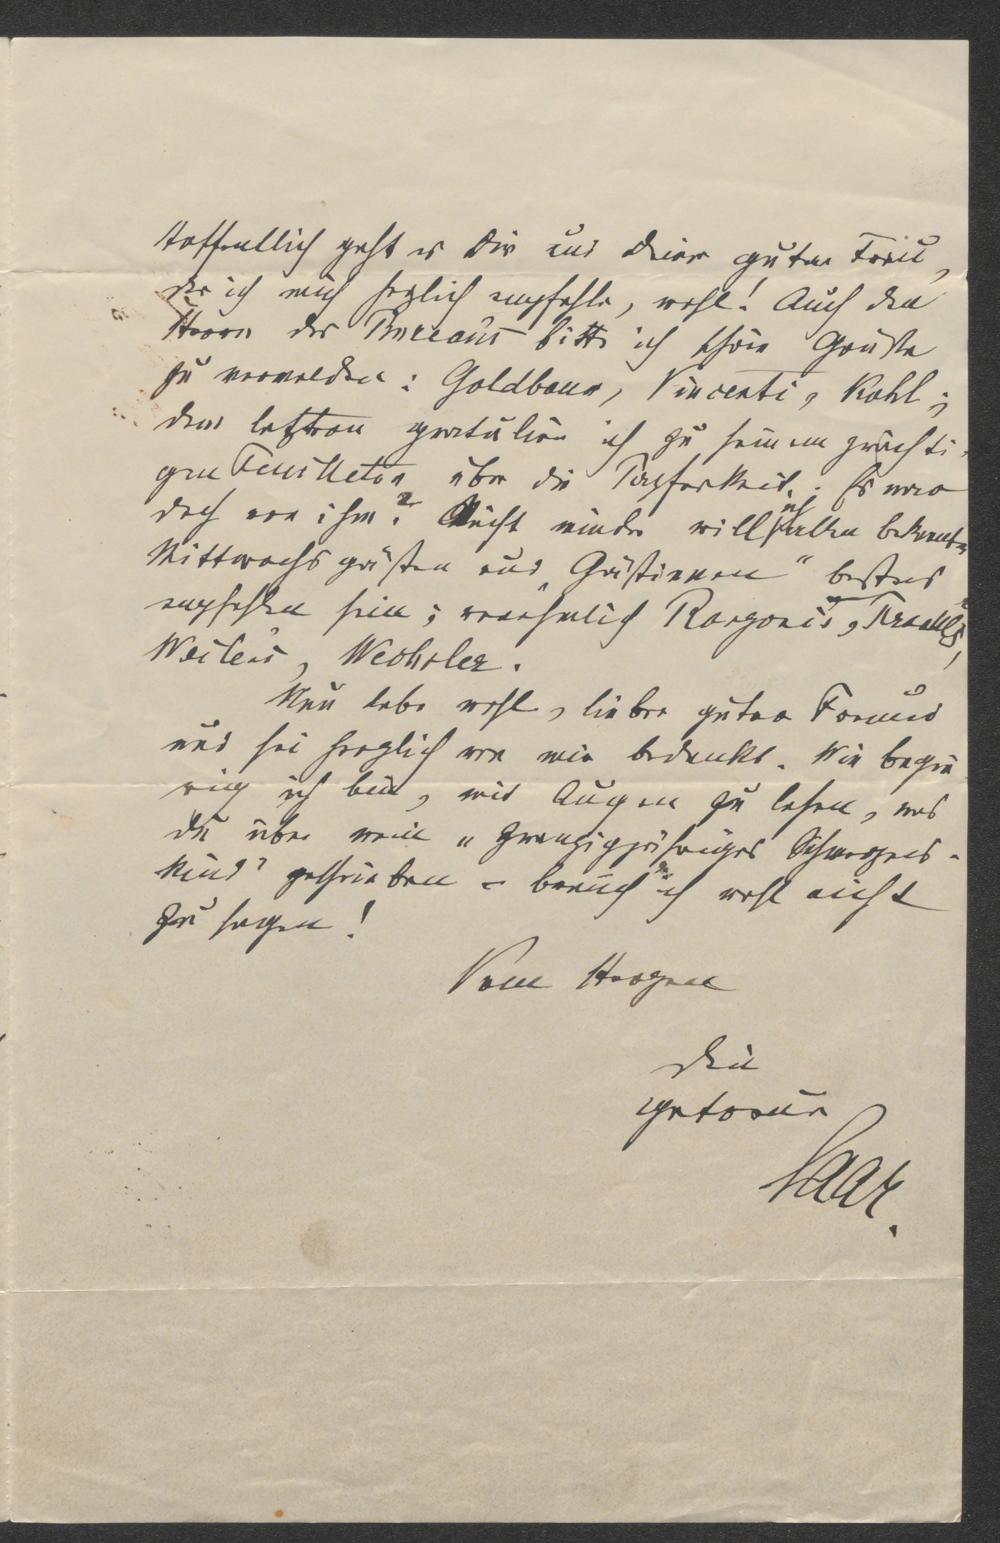 Hoffentlich geht es Dir und Deiner guten Frau,
der ich mich herzlich empfehle, wohl! Auch den
Herren des Bureaus bitte ich schöne Grüße
zu vermelden: Goldbaum, Vincenti, Kohl;
dem letzteren gratulire ich zu seinem prächti-
gen Feuilleton über die Tapferkeit. Es war
doch von ihm? Nicht minder will ich allen bekannten
Mittwochsgästen und „Gästinnen“ bestens
empfohlen sein; 
Weilens, Wechsler.
Nun lebe wohl, lieber guter Freund
und sei herzlich von mir bedankt. Wie begie-
rig ich bin, mit Augen zu lesen, was
Du über mein „zwanzigjähriges Schmerzens-
kind“ geschrieben – brauch' ich wohl nicht
zu sagen!
Vom Herzen
Dein
getreuer
Saar.